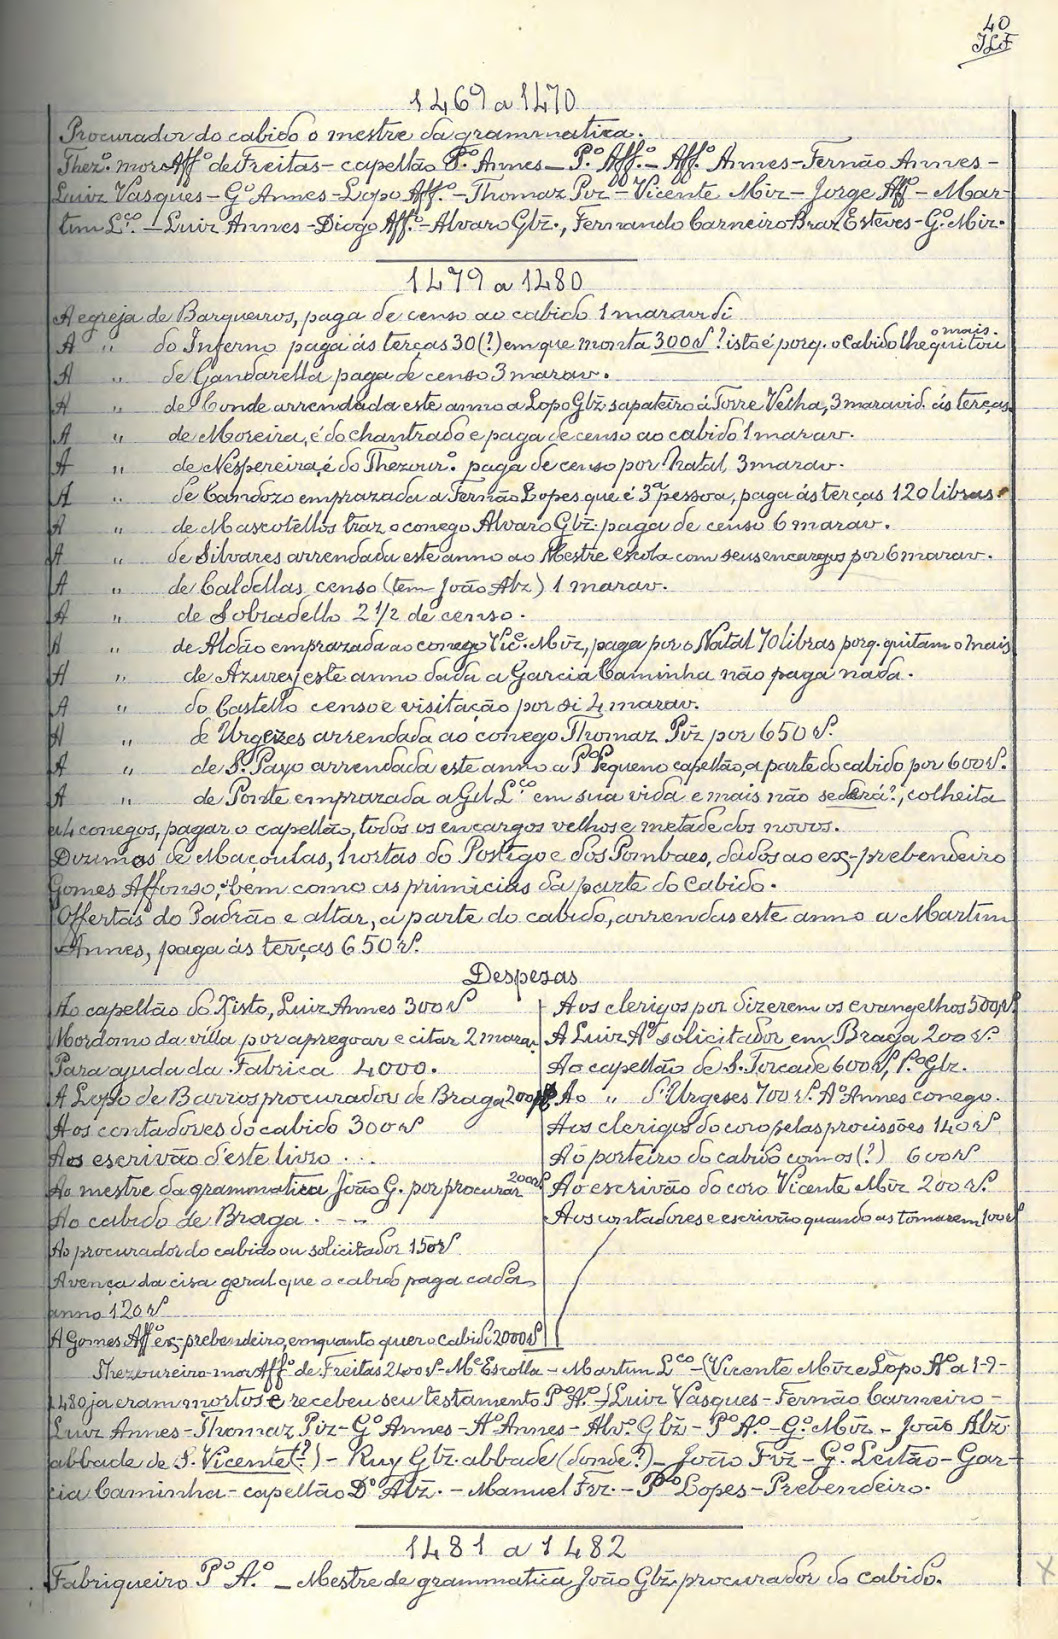 40
JLF
1469 a 1470
Procurador do cabido o mestre da grammatica.
Thez.º mor Aff.º de Freitas - capellão P.º Annes - P.º Aff.º - Aff.º Annes - Fernão Annes -
Luiz Vasques - G.º Annes - Lopo Aff.º - Thomaz Pirz - Vicente Miz - Jorge Aff.º - Mar-
tim L.ço - Luiz Annes - Diogo Aff.º - Alvaro Glz., Fernando Carneiro - Braz Esteves - G.º Miz.
1479 a 1480
A egreja de Barqueiros, paga de censo ao cabido 1 maravdi
A " do Inferno paga ás terças 30 (?) em que monta 300 rs ? isto é porq. o Cabido lhe quitou o mais.
A " de Gandarella paga de censo 3 marav.
A " de Conde arrendada este anno a Lopo Glz sapateiro á Torre Velha, 3 maravid. ás terças.
A " de Moreira, é do chantrado e paga de censo ao cabido 1 marav.
A " de Nespereira, é do Thezour.º paga de censo por Natal 3 marav.
A " de Candozo emprazada a Fernão Lopes que é 3ª pessoa, paga ás terças 120 libras.
A " de Mascotellos traz o conego Alvaro Glz. paga de censo 6 marav.
A " de Silvares arrendada este anno ao Mestre escola com seus encargos por 6 marav.
A " de Caldellas censo (tem João Alz) 1 marav.
A " de Sobradello 2 1/2 de censo.
A " de Aldão emprazada ao conego Vic.e Miz, paga por o Natal 70 libras porq. quitam o mais
A " de Azurey este anno dada a Garcia Caminha não paga nada.
A " do Castello censo e visitação por si 4 marav.
A " de Urgezes arrendada ao conego Thomaz Piz por 650 rs.
A " de S. Payo arrendada este anno a P.º Pequeno capellão, a parte do cabido por 600 rs.
A " de Ponte emprazada a Gil L.ço em sua vida e mais não se dará?, colheita
a 4 conegos, pagar o capellão, todos os encargos velhos e metade dos novos.
Dizimos de Maçoulas, hortas do Postigo e dos Pombaes, dados ao ex-prebendeiro
Gomes Affonso, bem como as primicias da parte do Cabido.
Offertas do Padrão e altar, a parte do cabido, arrendas este anno a Martim
Annes, paga ás terças 650 rs.
Despezas
Ao capellão do Xisto, Luiz Annes 300 rs
Mordomo da villa por apregoar e citar 2 marav.
Para ajuda da Fabrica 4000.
A Lopo de Barros procurador de Braga 200 rs
Aos contadores do cabido 300 rs
Aos escrivão d'este livro ...
Ao mestre da grammatica João G. por procurar 200 rs
Ao cabido de Braga . - -
Ao procurador do cabido ou solicitador 150 rs
Avença da cisa geral que o cabido paga cada
anno 120 rs
A Gomes Aff.º ex-prebendeiro, emquanto quer o cabido 2000 rs
Aos clerigos por dizerem os evangelhos 500 rs
A Luiz A.º solicitador em Braga 200 rs.
Ao capellão de S. Torcade 600 rs, P.º Glz.
Ao " d'Urgeses 700 rs. A.º Annes conego.
Aos clerigos do coro pelas procissões 140 rs
Ao porteiro do cabido com os (?) 600 rs
Ao escrivão do coro Vicente Miz 200 rs.
Aos contadores e escrivão quando as tomarem 100 rs
Thezoureiro-mor Aff.º de Freitas 2400 rs - M.e Escolla - Martim L.ço - (Vicente Miz e Lopo A.º a 1-9-
1480 ja eram mortos e recebeu seu testamento P.º A.º -) Luiz Vasques - Fernão Carneiro -
Luiz Annes - Thomaz Piz - G.º Annes - A.º Annes - Alv.º Glz - P.º A.º - G.º Miz - João Alz
abbade de S. Vicente (?) - Ruy Glz. abbade (donde?) - João Frz - G.º Leitão - Gar-
cia Caminha - capellão D.º Alz. - Manuel Frz. - P.º Lopes - Prebendeiro.
1481 a 1482
Fabriqueiro P.º A.º - Mestre de grammatica João Glz procurador do cabido.